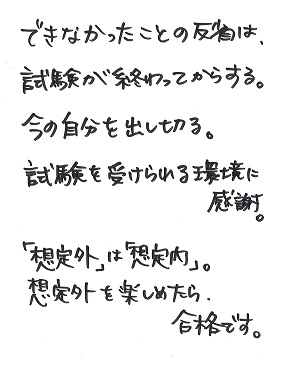 できなかったことの反省は、
試験が終わってからする。
今の自分を出し切る。
試験を受けられる環境に
感謝。
「想定外」は「想定内」。
想定外を楽しめたら、
合格です。